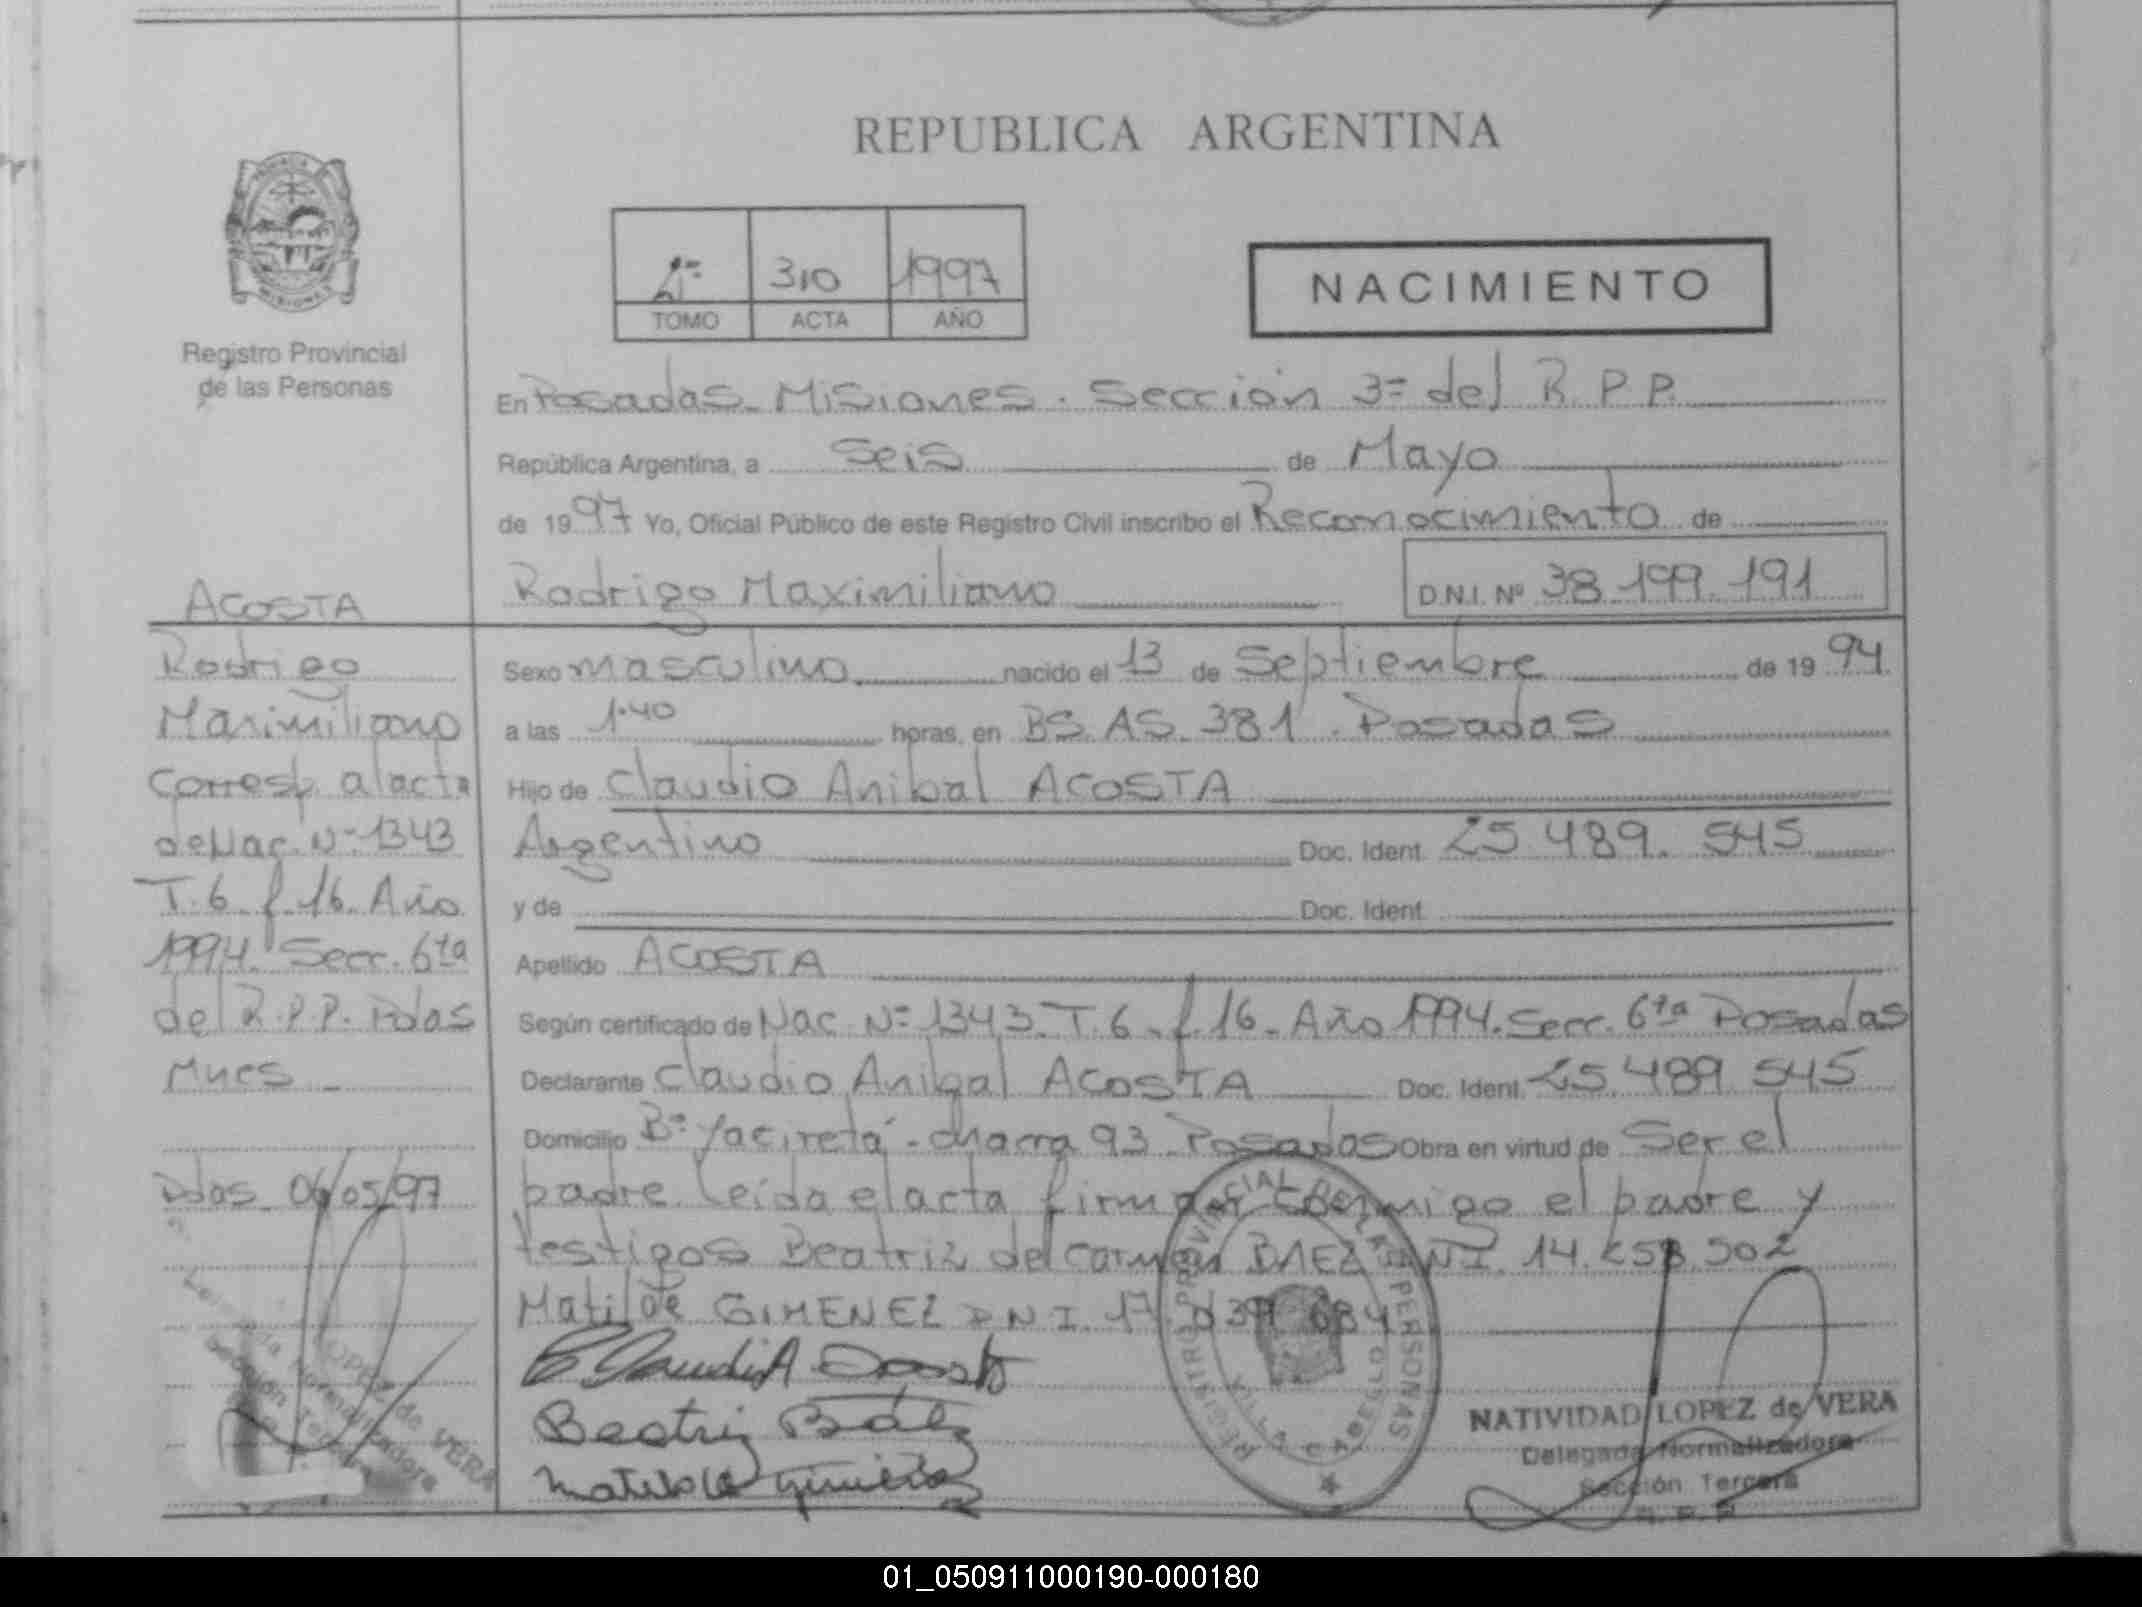 REPUBLICA ARGENTINA
PROVINCIA
MISIONES
Registro Provincial
de las Personas
1º 310 1997
TOMO ACTA AÑO
NACIMIENTO
En Posadas. Misiones. Sección 3ª del R.P.P.
República Argentina, a Seis de Mayo
de 1997 Yo, Oficial Público de este Registro Civil inscribo el Reconocimiento de
Rodrigo Maximiliano D.N.I. Nº 38.199.191
Sexo masculino nacido el 13 de Septiembre de 1994.
a las 1.40 horas, en BS. AS. 381. Posadas
Hijo de Claudio Anibal ACOSTA
Argentino Doc. Ident. 25.489.545
y de Doc. Ident.
Apellido ACOSTA
Según certificado de Nac. Nº 1343. T.6. f.16. Año 1994. Secc. 6ta Posadas
Declarante Claudio Anibal ACOSTA Doc. Ident. 25.489.545
Domicilio Bº Yacireta - chacra 93. Posadas Obra en virtud de Ser el
padre. Leída el acta firman conmigo el padre y
testigos Beatriz del Carmen BAEZ DNI. 14.258.502
Matilde GIMENEZ DNI. 17.
Claudio A. Acosta
Beatriz Báez
Matilde Gimenez
REGISTRO PROVINCIAL DE LAS PERSONAS
NATIVIDAD LOPEZ de VERA
Delegada Normalizadora
Sección Tercera
R. P. P.
ACOSTA
Rodrigo
Maximiliano
Corresp. al acta
de Nac. Nº 1343
T.6. f.16. Año
1994. Secc. 6ta
del R.P.P. Pdas
Mnes
Pdas. 06/05/97
LOPEZ de VERA
Delegada Normalizadora
Sección Tercera
01_050911000190-000180